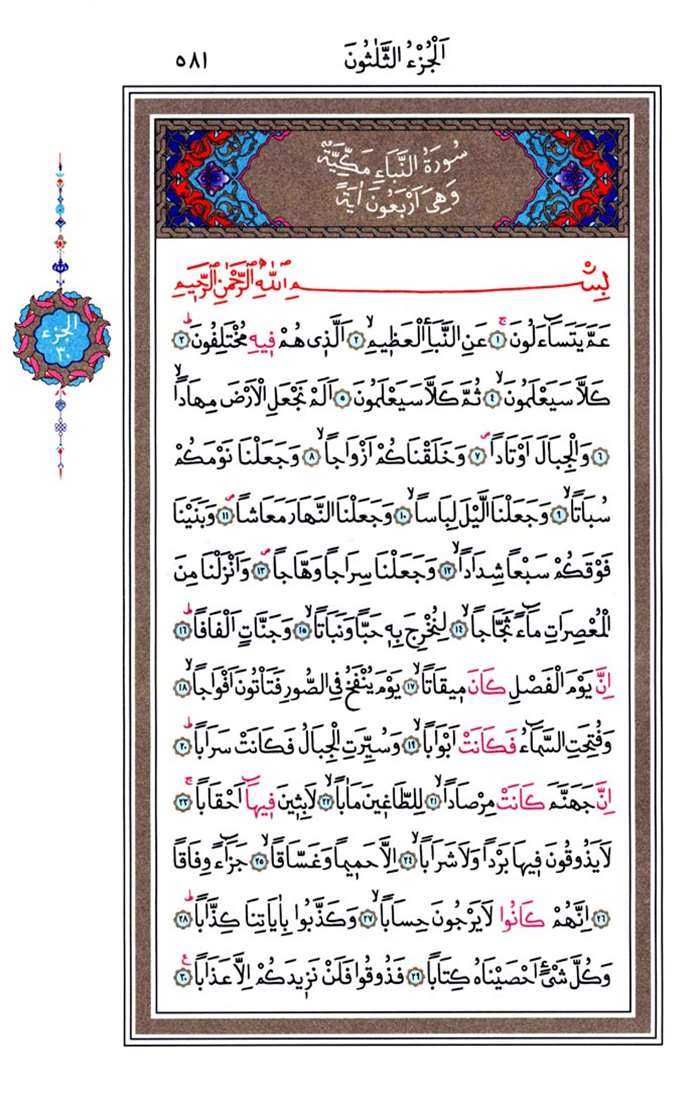 اَلْجُزْءُ الثَّلٰثُونَ
٥٨١
سُورَةُ النَّبَاءِ مَكِّيَّةٌ
وَهِىَ اَرْبَعُونَ اٰيَةً
بِسْمِ اللّٰهِ الرَّحْمٰنِ الرَّحِيمِ
الجزء
٣٠
عَمَّ يَتَسَٓاءَلُونَۚ ﴿١﴾ عَنِ النَّبَأِ الْعَظِيمِۙ ﴿٢﴾ اَلَّذِى هُمْ فِيهِ مُخْتَلِفُونَۜ ﴿٣﴾
كَلَّا سَيَعْلَمُونَۙ ﴿٤﴾ ثُمَّ كَلَّا سَيَعْلَمُونَ ﴿٥﴾ اَلَمْ نَجْعَلِ الْاَرْضَ مِهَاداًۙ
﴿٦﴾ وَالْجِبَالَ اَوْتَاداًۖ ﴿٧﴾ وَخَلَقْنَاكُمْ اَزْوَاجاًۙ ﴿٨﴾ وَجَعَلْنَا نَوْمَكُمْ
سُبَاتاًۙ ﴿٩﴾ وَجَعَلْنَا الَّيْلَ لِبَاساًۙ ﴿١٠﴾ وَجَعَلْنَا النَّهَارَ مَعَاشاًۖ ﴿١١﴾ وَبَنَيْنَا
فَوْقَكُمْ سَبْعاً شِدَاداًۙ ﴿١٢﴾ وَجَعَلْنَا سِرَاجاً وَهَّاجاًۖ ﴿١٣﴾ وَاَنْزَلْنَا مِنَ
الْمُعْصِرَاتِ مَٓاءً ثَجَّاجاًۙ ﴿١٤﴾ لِنُخْرِجَ بِهِ حَباًّ وَنَبَاتاًۙ ﴿١٥﴾ وَجَنَّاتٍ اَلْفَافاًۜ ﴿١٦﴾
اِنَّ يَوْمَ الْفَصْلِ كَانَ مِيقَاتاًۙ ﴿١٧﴾ يَوْمَ يُنْفَخُ فِى الصُّورِ فَتَأْتُونَ اَفْوَاجاًۙ ﴿١٨﴾
وَفُتِحَتِ السَّمَٓاءُ فَكَانَتْ اَبْوَاباًۙ ﴿١٩﴾ وَسُيِّرَتِ الْجِبَالُ فَكَانَتْ سَرَاباًۜ ﴿٢٠﴾
اِنَّ جَهَنَّمَ كَانَتْ مِرْصَاداًۙ ﴿٢١﴾ لِلطَّاغِينَ مَاٰباًۙ ﴿٢٢﴾ لَابِثِينَ فِيهَٓا اَحْقَاباًۚ ﴿٢٣﴾
لَايَذُوقُونَ فِيهَا بَرْداً وَلَا شَرَاباًۙ ﴿٢٤﴾ اِلَّا حَمِيماً وَغَسَّاقاًۙ ﴿٢٥﴾ جَزَٓاءً وِفَاقاً
﴿٢٦﴾ اِنَّهُمْ كَانُوا لَايَرْجُونَ حِسَاباًۙ ﴿٢٧﴾ وَكَذَّبُوا بِاٰيَاتِنَا كِذَّاباًۜ ﴿٢٨﴾
وَكُلَّ شَىْءٍ اَحْصَيْنَاهُ كِتَاباًۙ ﴿٢٩﴾ فَذُوقُوا فَلَنْ نَزِيدَكُمْ اِلَّا عَذَاباً ﴿٣٠﴾ ع